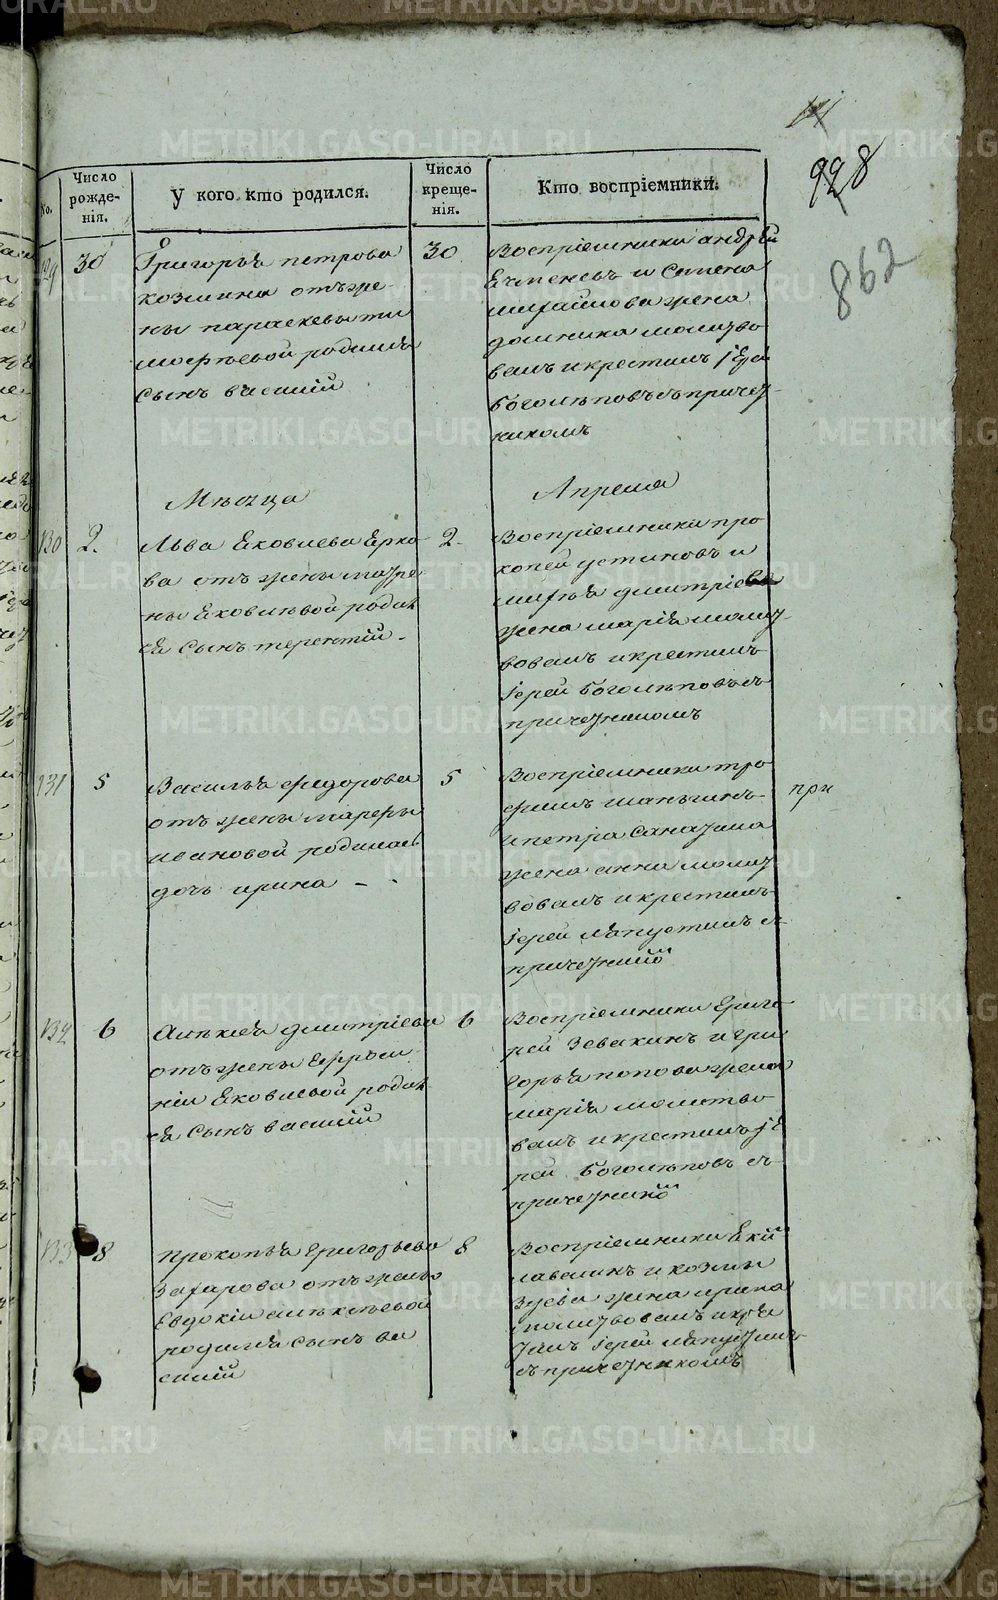 928
862
No.
Число рожде-нія.
У кого кто родился.
Число креще-нія.
Кто воспріемники.
129
30
Григорья петрова
козмина отъ же
ны параскевы ти
мофѣевой родился
сынъ василій
30
Воспріемники андрѣй
и Семена
михайлова жена
домника молитво
валъ и крестилъ іерѣй
боголѣповъ съ причет
никомъ
Мѣсяца
Апреля
130
2.
Льва Яковлева Ерко
ва отъ жены матре
ны Яковлѣвой родил
ся сынъ терентій.
2.
Воспріемники про
копей устиновъ и
михѣя дмитріева
жена марія молит
вовалъ и крестилъ
іерей боголѣповъ съ
причетникомъ
131
5
Василья федорова
отъ жены марфы
ивановой родилась
дочь ирина -
5
Воспріемники тро
фимъ шаньгинъ
и петра
жена анна молит
вовалъ и крестилъ
іерей лапустинъ съ
причетникомъ
при
132
6
Алѣксѣя дмитріева
отъ жены Ефроси
ніи Яковлевой родил
ся сынъ василій
6
Воспріемники Григо
рей Зевакинъ и гри
горья попова жена
марія молитво
валъ и крестилъ іе
рей боголѣповъ съ
причетникомъ
133
8
прокопья Григорьева
Захарова отъ жены
Евдокіи алѣксѣевой
родился сынъ ва
силій
8
Воспріемники
и козмы
Зуева жена ирина
молитвовалъ и крѣс
тилъ іерей лапустинъ
съ причетникомъ
METRIKI.GASO-URAL.RU